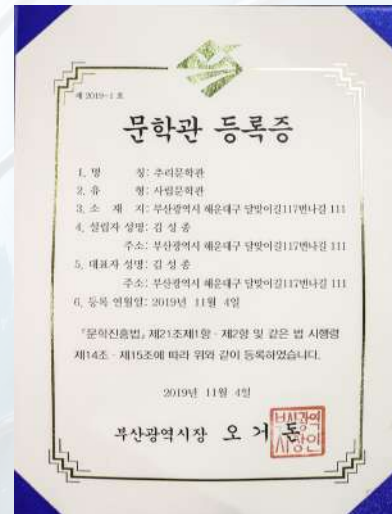 제 2019-1 호
문학관 등록증
1. 명 칭: 추리문학관
2. 유 형: 사립문학관
3. 소 재 지: 부산광역시 해운대구 달맞이길117번나길 111
4. 설립자 성명: 김 성 종
주소: 부산광역시 해운대구 달맞이길117번나길 111
5. 대표자 성명: 김 성 종
주소: 부산광역시 해운대구 달맞이길117번나길 111
6. 등록 연월일: 2019년 11월 4일
「문학진흥법」 제21조제1항 · 제2항 및 같은 법 시행령
제14조 · 제15조에 따라 위와 같이 등록하였습니다.
2019년 11월 4일
부산광역시장 오 거 돈
부산광역
시장인